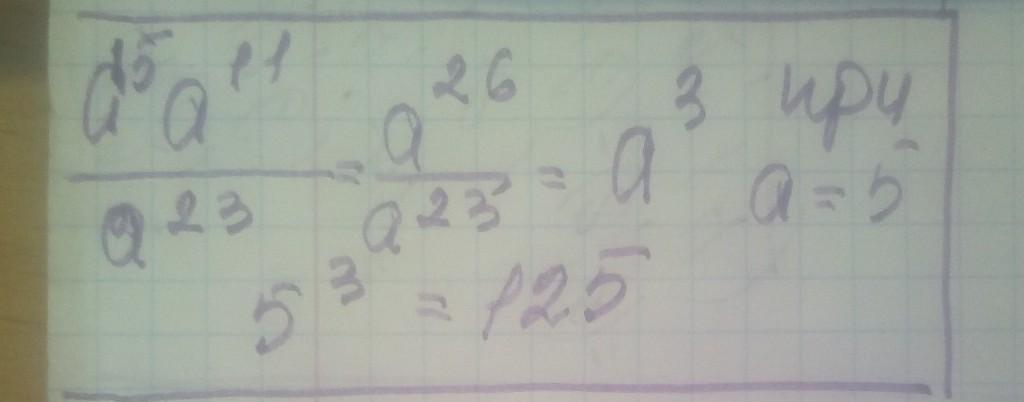 a¹⁵a¹¹/a²³ = a²⁶/a²³ = a³ при a = 5
5³ = 125